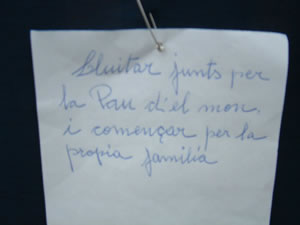 Lluitar junts per
la Pau d'el mon,
i començar per la
propia familia